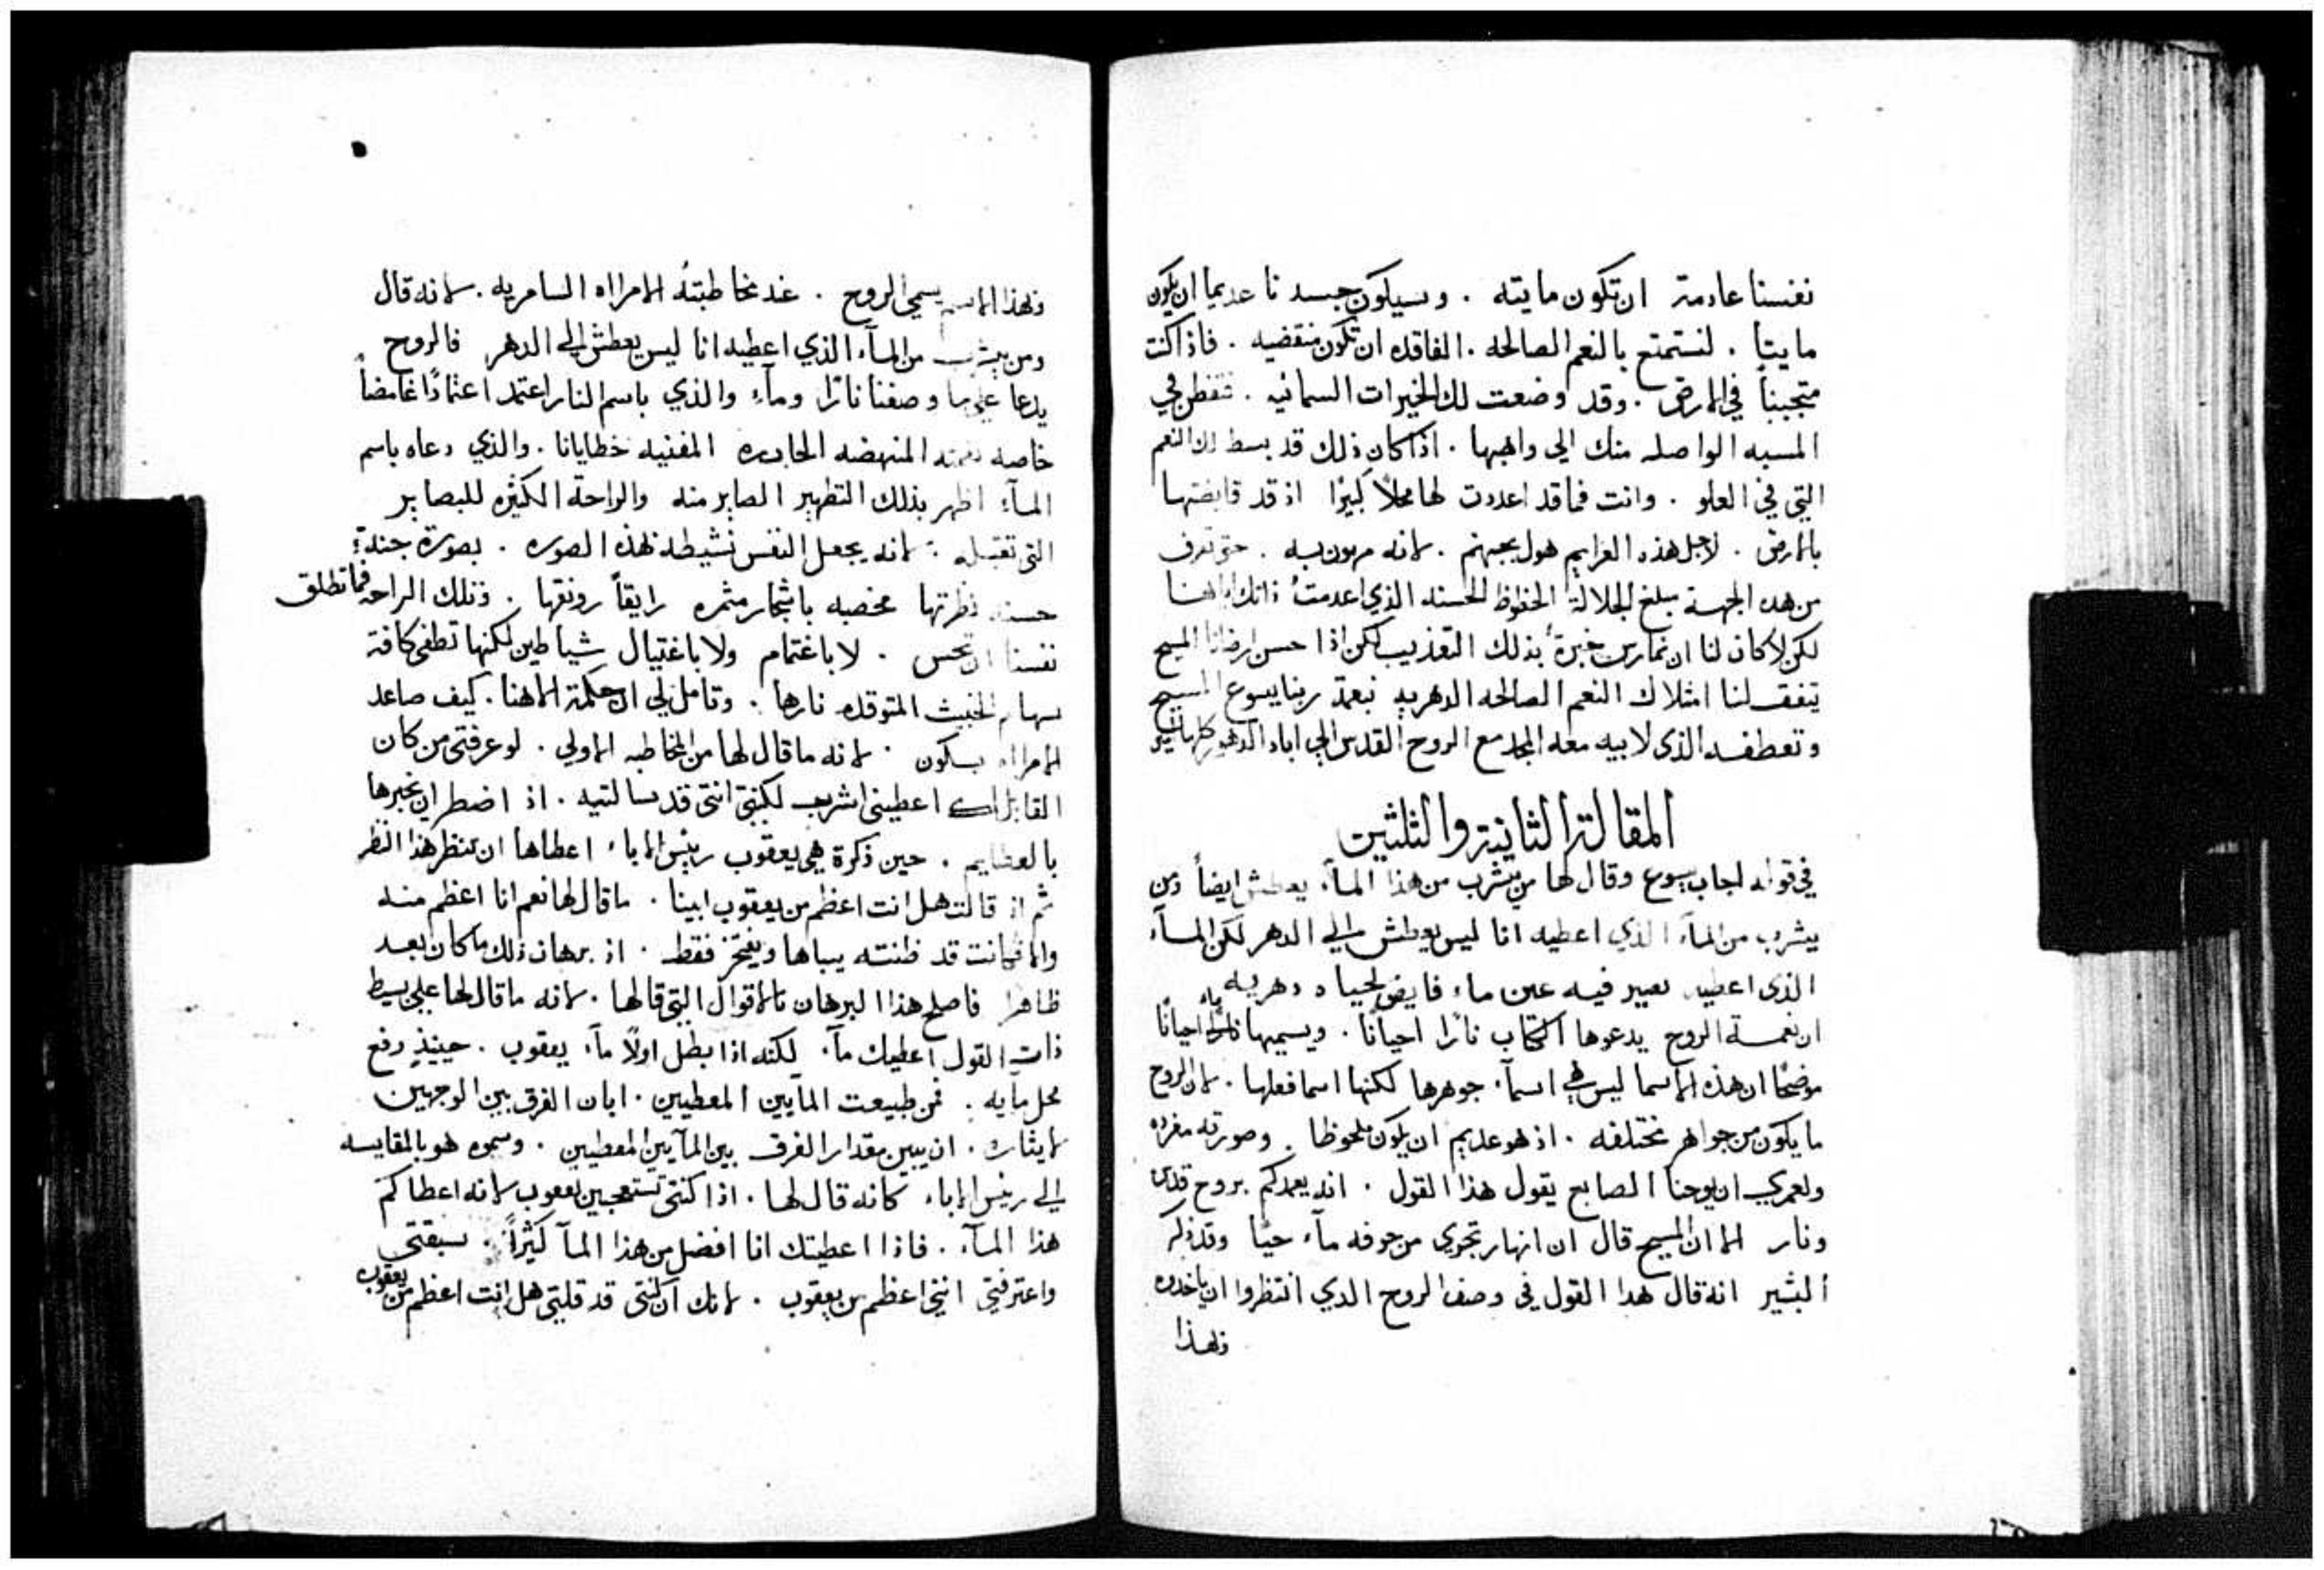 نفسنا عادمة ان تكون مايته . وسيكون جسدنا عديما ان يكون
مايتا . لنستمتع بالنعم الصالحه . الفاقده ان تكون منقضيه . فاذا كنت
متجبناً في الارض . وقد وضعت لك الخيرات السمائيه . فتفطن في
المسبه الواصله منك الي واهبها . اذا كان ذلك قد بسط لك النعم
التي في العلو . وانت فما قد اعددت لها محلاً كبيرًا اذ قد قايضتها
بالارض . لاجل هذه العزايم هول بجهنم . لانه مرهون به . حتي تعرف
من هده الجهة مبلغ الجلالة الحظوظ الحسنه الذي اعدمتُ ذاتك
لكن لا كان لنا ان نمارس خبرة بذلك التعذيب لكن اذا احسن ارضانا المسيح
يتفق لنا امتلاك النعم الصالحه الدهريه بنعمة ربنا يسوع المسيح
وتعطفه الذى لابيه معه المجد مع الروح القدس الي اباد الدهور كلها امين
المقالة الثانية والثلثين
في قوله اجاب يسوع وقال لها من يشرب من هذا المآء يعطش ايضاً ومن
يشرب من المآء الذي اعطيه انا ليس يعطش الي الدهر لكن المآء
الذى اعطيه يصير فيه عين ماء فايض لحياه دهريه
ان نعمة الروح يدعوها الكتاب نارًا احيانًا . ويسميها ماء احيانًا
موضحًا ان هذه الاسما ليس هي اسمآء جوهرها لكنها اسما فعلها . لان الروح
ما يكون من جواهر مختلفه . اذ هو عديم ان يكون ملحوظا . وصورته مفرده
ولعمري ان يوحنا الصابع يقول هذا القول . انه يعمدكم بروح قدس
ونار الا ان المسيح قال ان انهار تجري من جوفه مآء حيًا وقد ذكر
البشير انه قال هدا القول في وصف الروح الدي انتظروا ان ياخدوه
ولهذا
ولهذا الاسم يسمي الروح . عند مخاطبتهُ الامرااه السامريه . لانه قال
ومن يشرب من المآء الذي اعطيه انا ليس يعطش الي الدهر فالروح
يدعا علي ما وصفنا نارًا ومآء والذي باسم النار اعتمد اعتمادًا غامضاً
خاصه نعمته المنهضه الحاره المفنيه خطايانا . والذي دعاه باسم
المآء اظهر بذلك التطهير الصاير منه والراحة الكثيره للبصاير
التى تقتبله . لانه يجعل النفس نشيطه لهذه الصوره . بصورة جنة
حسنه نظرتها مخصبه باشجار مثمره رايقاً رونقها . وتلك الراحه فما تطلق
نفسنا ان تحس . لا باغتمام ولا باغتيال شياطين لكنها تطفى كافة
سهام الخبيث المتوقده نارها . وتامل لي ان حكمة الاهنا . كيف صاعد
الامرااه بسكون . لانه ما قال لها من المخاطبه الاولي . لو عرفتى من كان
القايل لك اعطيني اشرب لكنتى انتى قد سالتيه . اذ اضطر ان يخبرها
بالعظايم . حين ذكرة هي يعقوب رييس الاباء اعطاها ان تنظر هذا النظر
ثم اذ قالت هل انت اعظم من يعقوب ابينا . ما قال لها نعم انا اعظم منه
والا فكانت قد ظنته يباها ويفتخر فقط . اذ برهان ذلك ما كان بعد
ظاهرا فاصلح هذا البرهان بالاقوال التي قالها . لانه ما قال لها علي بسيط
ذات القول اعطيك مآء . لكنه اذا بطل اولاً مآء يعقوب . حينيذٍ رفع
محل مايه . فمن طبيعت المآيين المعطيين . ابان الفرق بين الوجهين
لايثاره . ان يبين مقدار الفرق بين المآيين المعطيين . وسموه هو بالمقايسه
الي رييس الاباء كانه قال لها . اذا كنتى تستعجبين ليعقوب لانه اعطاكم
هذا المآء . فاذا اعطيتك انا افضل من هذا المآ كثيرًا . سبقتى
واعترفتي انني اعظم من يعقوب . لانك ان كنتى قد قلتي هل انت اعظم من يعقوب